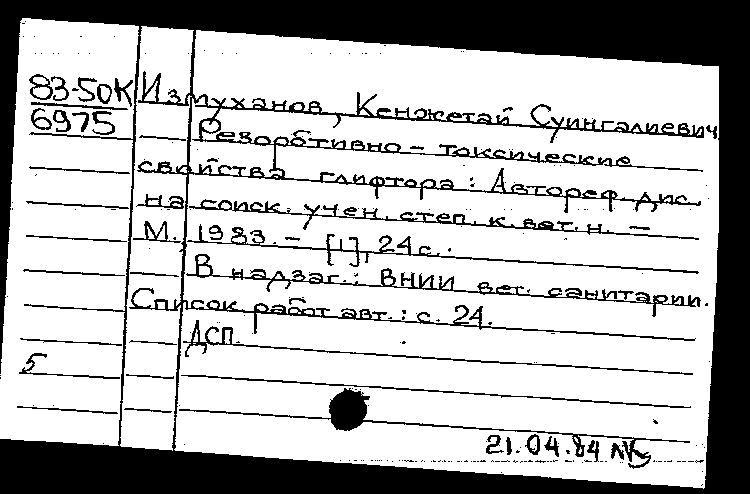 83-50К Измуханов, Кенжетай Суингалиевич.
6975 Резорбтивно-токсические
свойства глифтора: Автореф. дис.
на соиск. учен. степ. к. вет. н. —
М., 1983. — [1], 24 с.
В надзаг.: ВНИИ вет. санитарии.
Список работ авт.: с. 24.
ДСП.
5
21.04.84